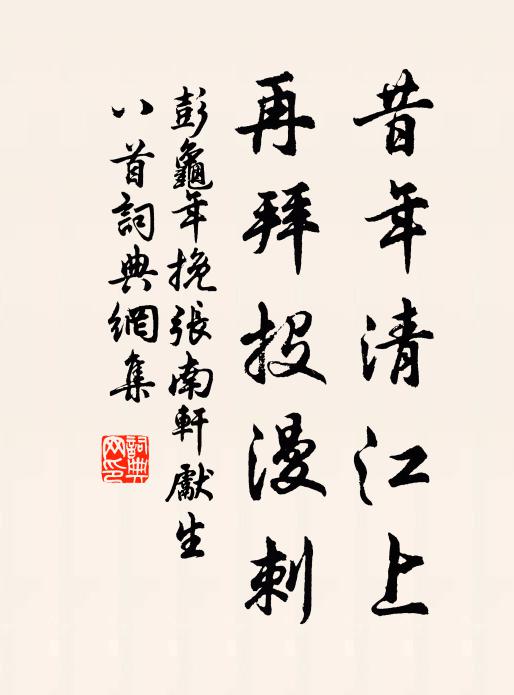 昔年清江上
再拜投漫刺
彭龜年挽張南軒獻生
八首詞典網集
詞典网印